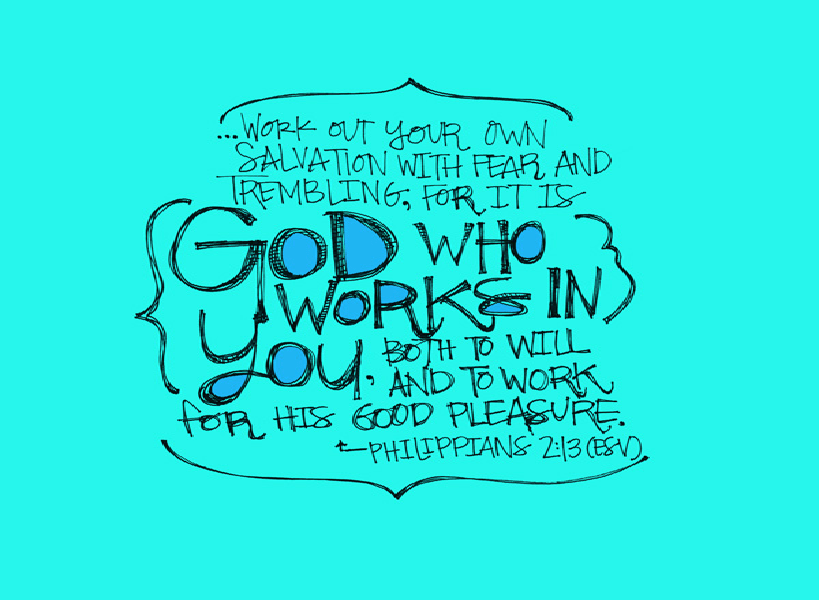 ...WORK OUT YOUR OWN
SALVATION WITH FEAR AND
TREMBLING, FOR IT IS
GOD WHO
WORKS IN
You, BOTH TO WILL
AND TO WORK
for HIS GOOD PLEASURE.
—PHILIPPIANS 2:13 (ESV)